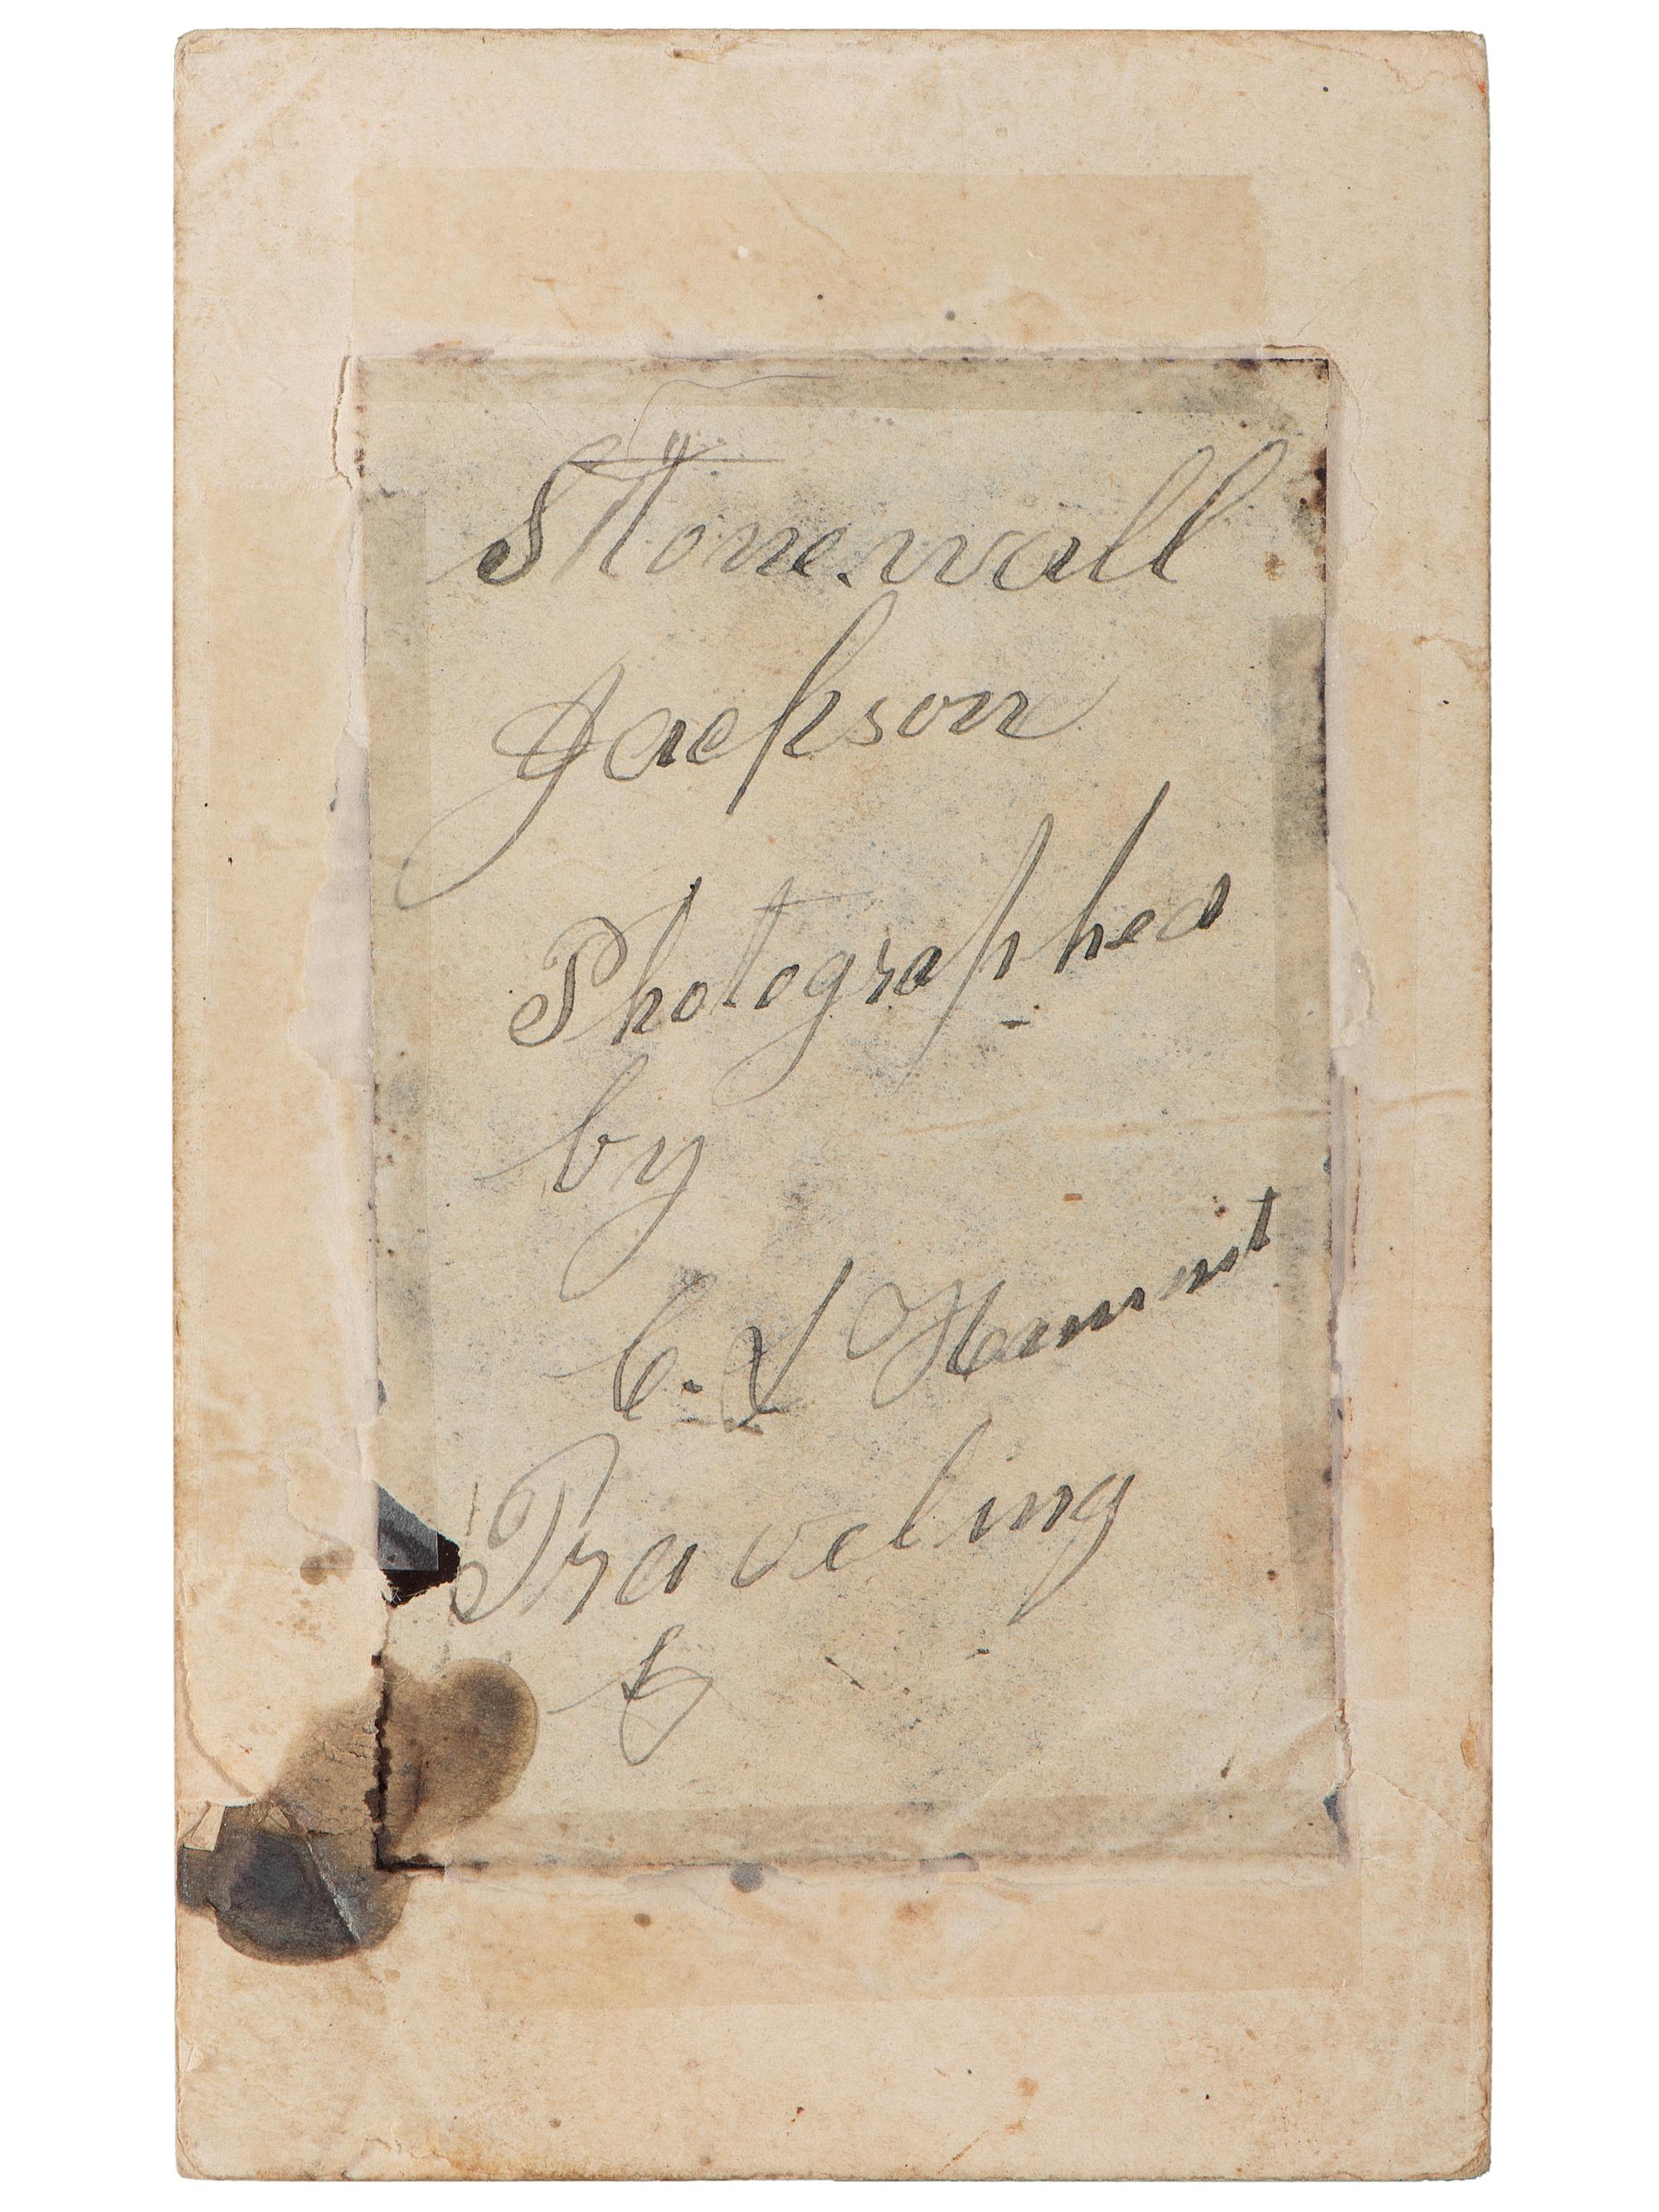 Stonewall
Jackson
Photographed
by
C. L
Traveling